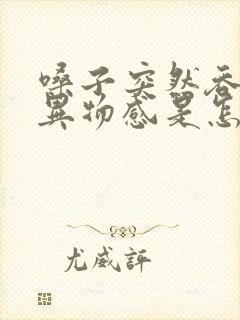 嗓子突然吞
異物感是怎
尤威評